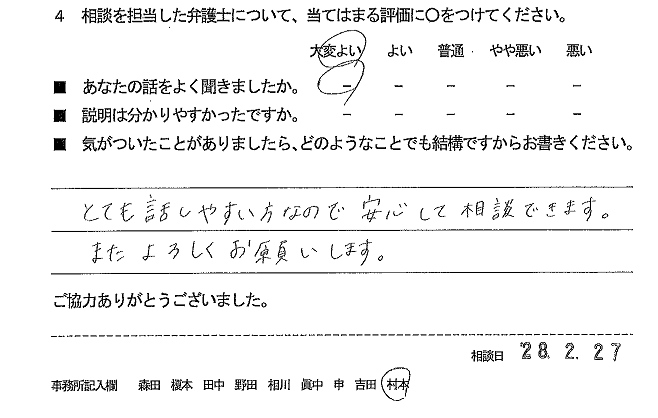 4 相談を担当した弁護士について、当てはまる評価に○をつけてください。
大変よい よい 普通 やや悪い 悪い
■ あなたの話をよく聞きましたか。 － － － － －
■ 説明は分かりやすかったですか。 － － － － －
■ 気がついたことがありましたら、どのようなことでも結構ですからお書きください。
とても話しやすい方なので安心して相談できます。
またよろしくお願いします。
ご協力ありがとうございました。
相談日 '28. 2. 27
事務所記入欄 森田 榎本 田中 野田 相川 眞中 申 吉田 村本